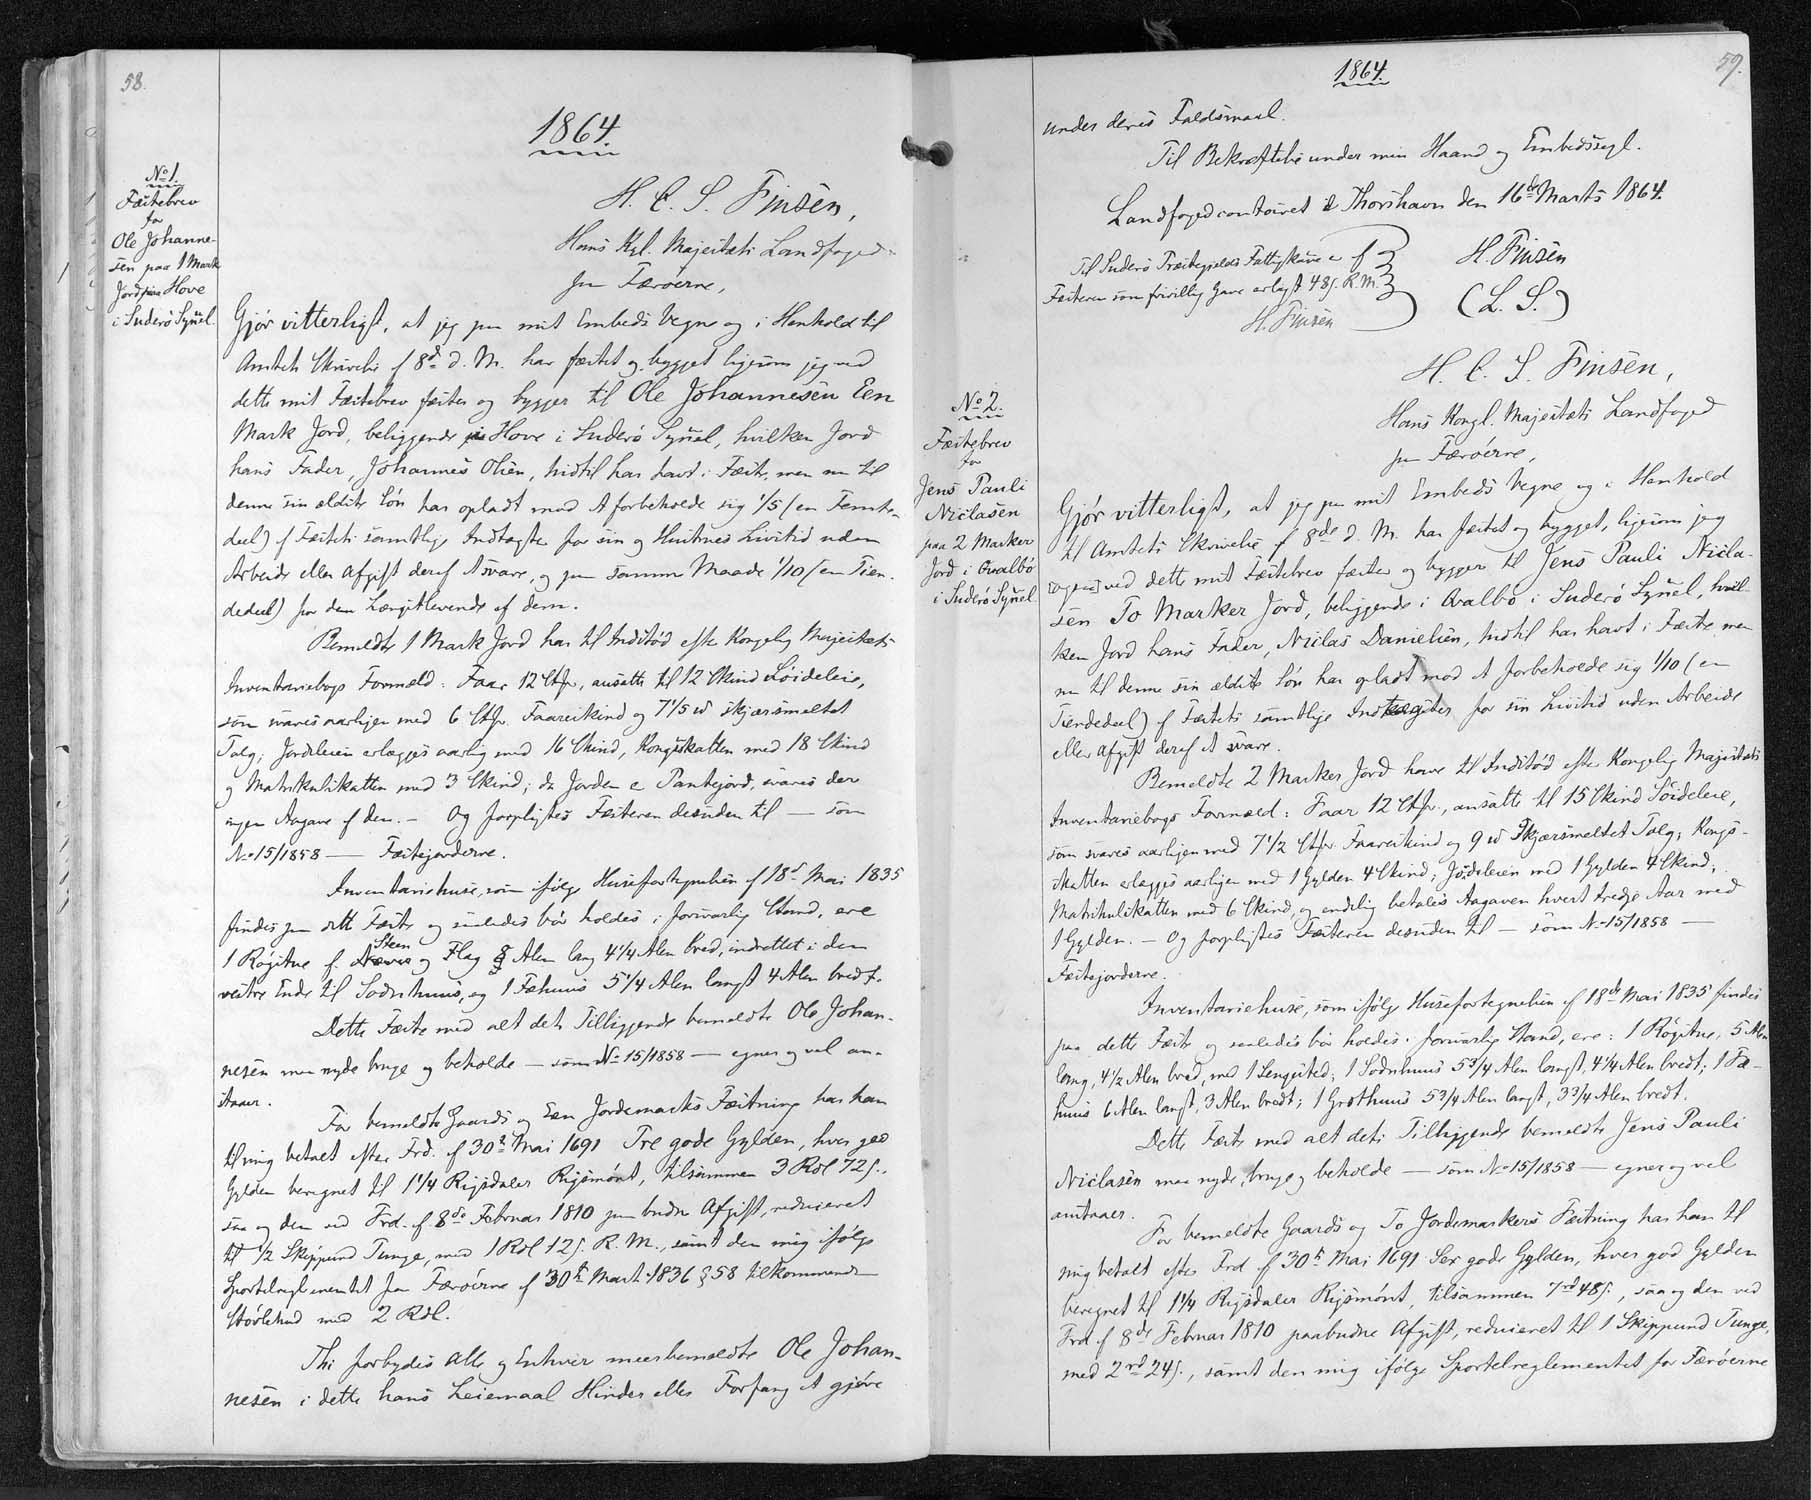 58.
1864.
No 1.
Fæstebrev
for
Ole Johanne-
sen paa 1 Mark
Jord paa Hove
i Suderø Syssel.
H. C. S. Finsen,
Hans Kgl. Majestæts Landfoged
paa Færøerne,
Gjør vitterligt, at jeg paa mit Embeds Vegne og i Henhold til
Amtets Skrivelse af 8de d. M. har fæstet og bygget ligesom jeg ved
dette mit Fæstebrev fæster og bygger til Ole Johannesen Een
Mark Jord, beliggende paa Hove i Suderø Syssel, hvilken Jord
hans Fader, Johannes Olsen, hidtil har havt i Fæste, men nu til
denne sin ældste Søn har opladt mod at forbeholde sig 1/5 (en Femte-
deel) af Fæstets samtlige Indtægter for sin og Hustrues Livstid uden
Arbeide eller Afgift deraf at svare, og paa samme Maade 1/10 (en Tien-
dedeel) for den Længstlevende af dem.
Bemeldte 1 Mark Jord har til Indstød efter Kongelig Majestæts
Inventariebogs Formeld: Faar 12 Stkr, ansatte til 12 Skind Søideleie,
som svares aarligen med 6 Stkr. Faareskind og 7 1/5 ℔ skjærsmeltet
Talg; Jordleien erlægges aarlig med 16 Skind, Kongsskatten med 18 Skind
og Matrikulskatten med 3 Skind; da Jorden er Pantejord, svares der
ingen Aagave af den. — Og forpligtes Fæsteren desuden til — som
No 15/1858 — Fæstejorderne.
Inventariehuse, som ifølge Husefortegnelsen af 18de Mai 1835
findes paa dette Fæste og saaledes bør holdes i forsvarlig Stand, ere
1 Røgstue af Steen og Flag 8 Alen lang 4 1/4 Alen bred, indrettet i den
vestre Ende til Sodnhuus, og 1 Fæhuus 5 1/4 Alen langt 4 Alen bredt.
Dette Fæste med alt dets Tilliggende bemeldte Ole Johan-
nesen maa nyde bruge og beholde — som No 15/1858 — egner og vel an-
staaer.
For bemeldte Gaards og Een Jordemarks Fæstning har han
til mig betalt efter Frd. af 30te Mai 1691 Tre gode Gylden, hver god
Gylden beregnet til 1 1/4 Rigsdaler Rigsmønt, tilsammen 3 Rdl 72 ſ.,
saa og den ved Frd. af 8de Februar 1810 paa budne Afgift, reduceret
til 1/2 Skippund Tunge, med 1 Rdl 12 ſ. R. M., samt den mig ifølge
Sportelreglementet for Færøerne af 30te Marts 1836 § 58 tilkommende
Støvlehud med 2 Rdl.
Thi forbydes Alle og Enhver meerbemeldte Ole Johan-
nesen i dette hans Leiemaal Hinder eller Forfang at gjøre
59.
1864.
under deres Faldsmaal.
Til Bekræftelse under min Haand og Embedssegl.
Landfogedcontoiret i Thorshavn den 16de Marts 1864.
Til Suderø Præstegjelds Fattigkasse er af
Fæsteren som frivillig Gave erlagt 48 ſ. R. M.
H. Finsen
H. Finsen
(L. S.)
No 2.
Fæstebrev
for
Jens Pauli
Niclasen
paa 2 Marker
Jord i Qvalbø
i Suderø Syssel
H. C. S. Finsen,
Hans Kongl. Majestæts Landfoged
paa Færøerne,
Gjør vitterligt, at jeg paa mit Embeds Vegne og i Henhold
til Amtets Skrivelse af 8de d. M. har fæstet og bygget, ligesom jeg
ogsaa ved dette mit Fæstebrev fæster og bygger til Jens Pauli Nicla-
sen To Marker Jord, beliggende i Qvalbø i Suderø Syssel, hvil-
ken Jord hans Fader, Niclas Danielsen, hidtil har havt i Fæste, men
nu til denne sin ældste Søn har opladt mod at forbeholde sig 1/10 (en
Tiendedeel) af Fæstets samtlige Indtægter for sin Livstid uden Arbeide
eller Afgift deraf at svare.
Bemeldte 2 Marker Jord have til Indstød efter Kongelig Majestæts
Inventariebogs Formeld: Faar 12 Stkr., ansatte til 15 Skind Søideleie,
som svares aarligen med 7 1/2 Stkr Faareskind og 9 ℔ Skjærsmeltet Talg; Kongs-
skatten erlægges aarligen med 1 Gylden 4 Skind; Jordleien med 1 Gylden 4 Skind;
Matrikulskatten med 6 Skind, og endelig betales Aagaven hvert tredje Aar med
1 Gylden. — Og forpligtes Fæsteren desuden til — som No 15/1858 —
Fæstejorderne.
Inventariehuse, som ifølge Husefortegnelsen af 18de Mai 1835 findes
paa dette Fæste og saaledes bør holdes i forsvarlig Stand, ere: 1 Røgstue, 5 Alen
lang, 4 1/2 Alen bred, med 1 Sengested; 1 Sodnhuus 5 3/4 Alen langt, 4 1/4 Alen bredt; 1 Fæ-
huus 6 Alen langt, 3 Alen bredt; 1 Grothuus 5 3/4 Alen langt, 3 3/4 Alen bredt.
Dette Fæste med alt dets Tilliggende bemeldte Jens Pauli
Niclasen maa nyde, bruge og beholde — som No 15/1858 — egner og vel
anstaaer.
For bemeldte Gaards og To Jordemarkers Fæstning har han til
mig betalt efter Frd af 30te Mai 1691 Sex gode Gylden, hver god Gylden
beregnet til 1 1/4 Rigsdaler Rigsmønt, tilsammen 7 rd 48 ſ., saa og den ved
Frd af 8de Februar 1810 paabudne Afgift, reduceret til 1 Skippund Tunge,
med 2 rd 24 ſ., samt den mig ifølge Sportelreglementet for Færøerne